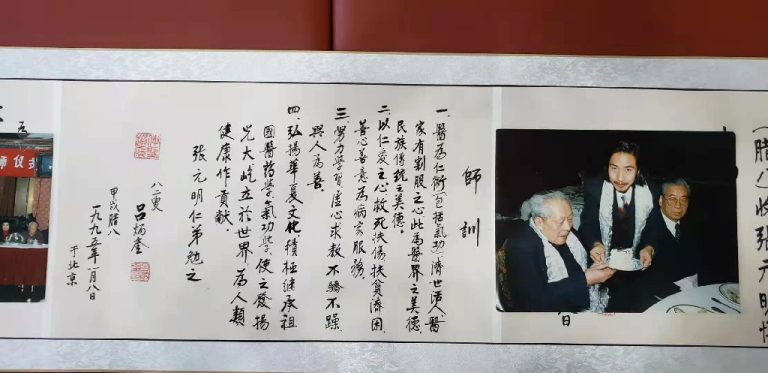 (腊八)收张元明
日
師訓
一、醫為仁術(包括氣功)濟世活人醫
家有割股之心此為醫界之美德、
民族傳統之美德。
二、以仁爱之心救死扶傷扶貧濟困
善心善意為病家服務
三、努力學習虛心求教不驕不躁
與人為善。
四、弘揚華夏文化積極继承祖
國醫药學氣功學、使之發揚
光大屹立於世界、為人類
健康作貢献。
張元明仁弟勉之
八二叟 呂炳奎
甲戌腊八
一九九五年一月八日
于北京
师仪式